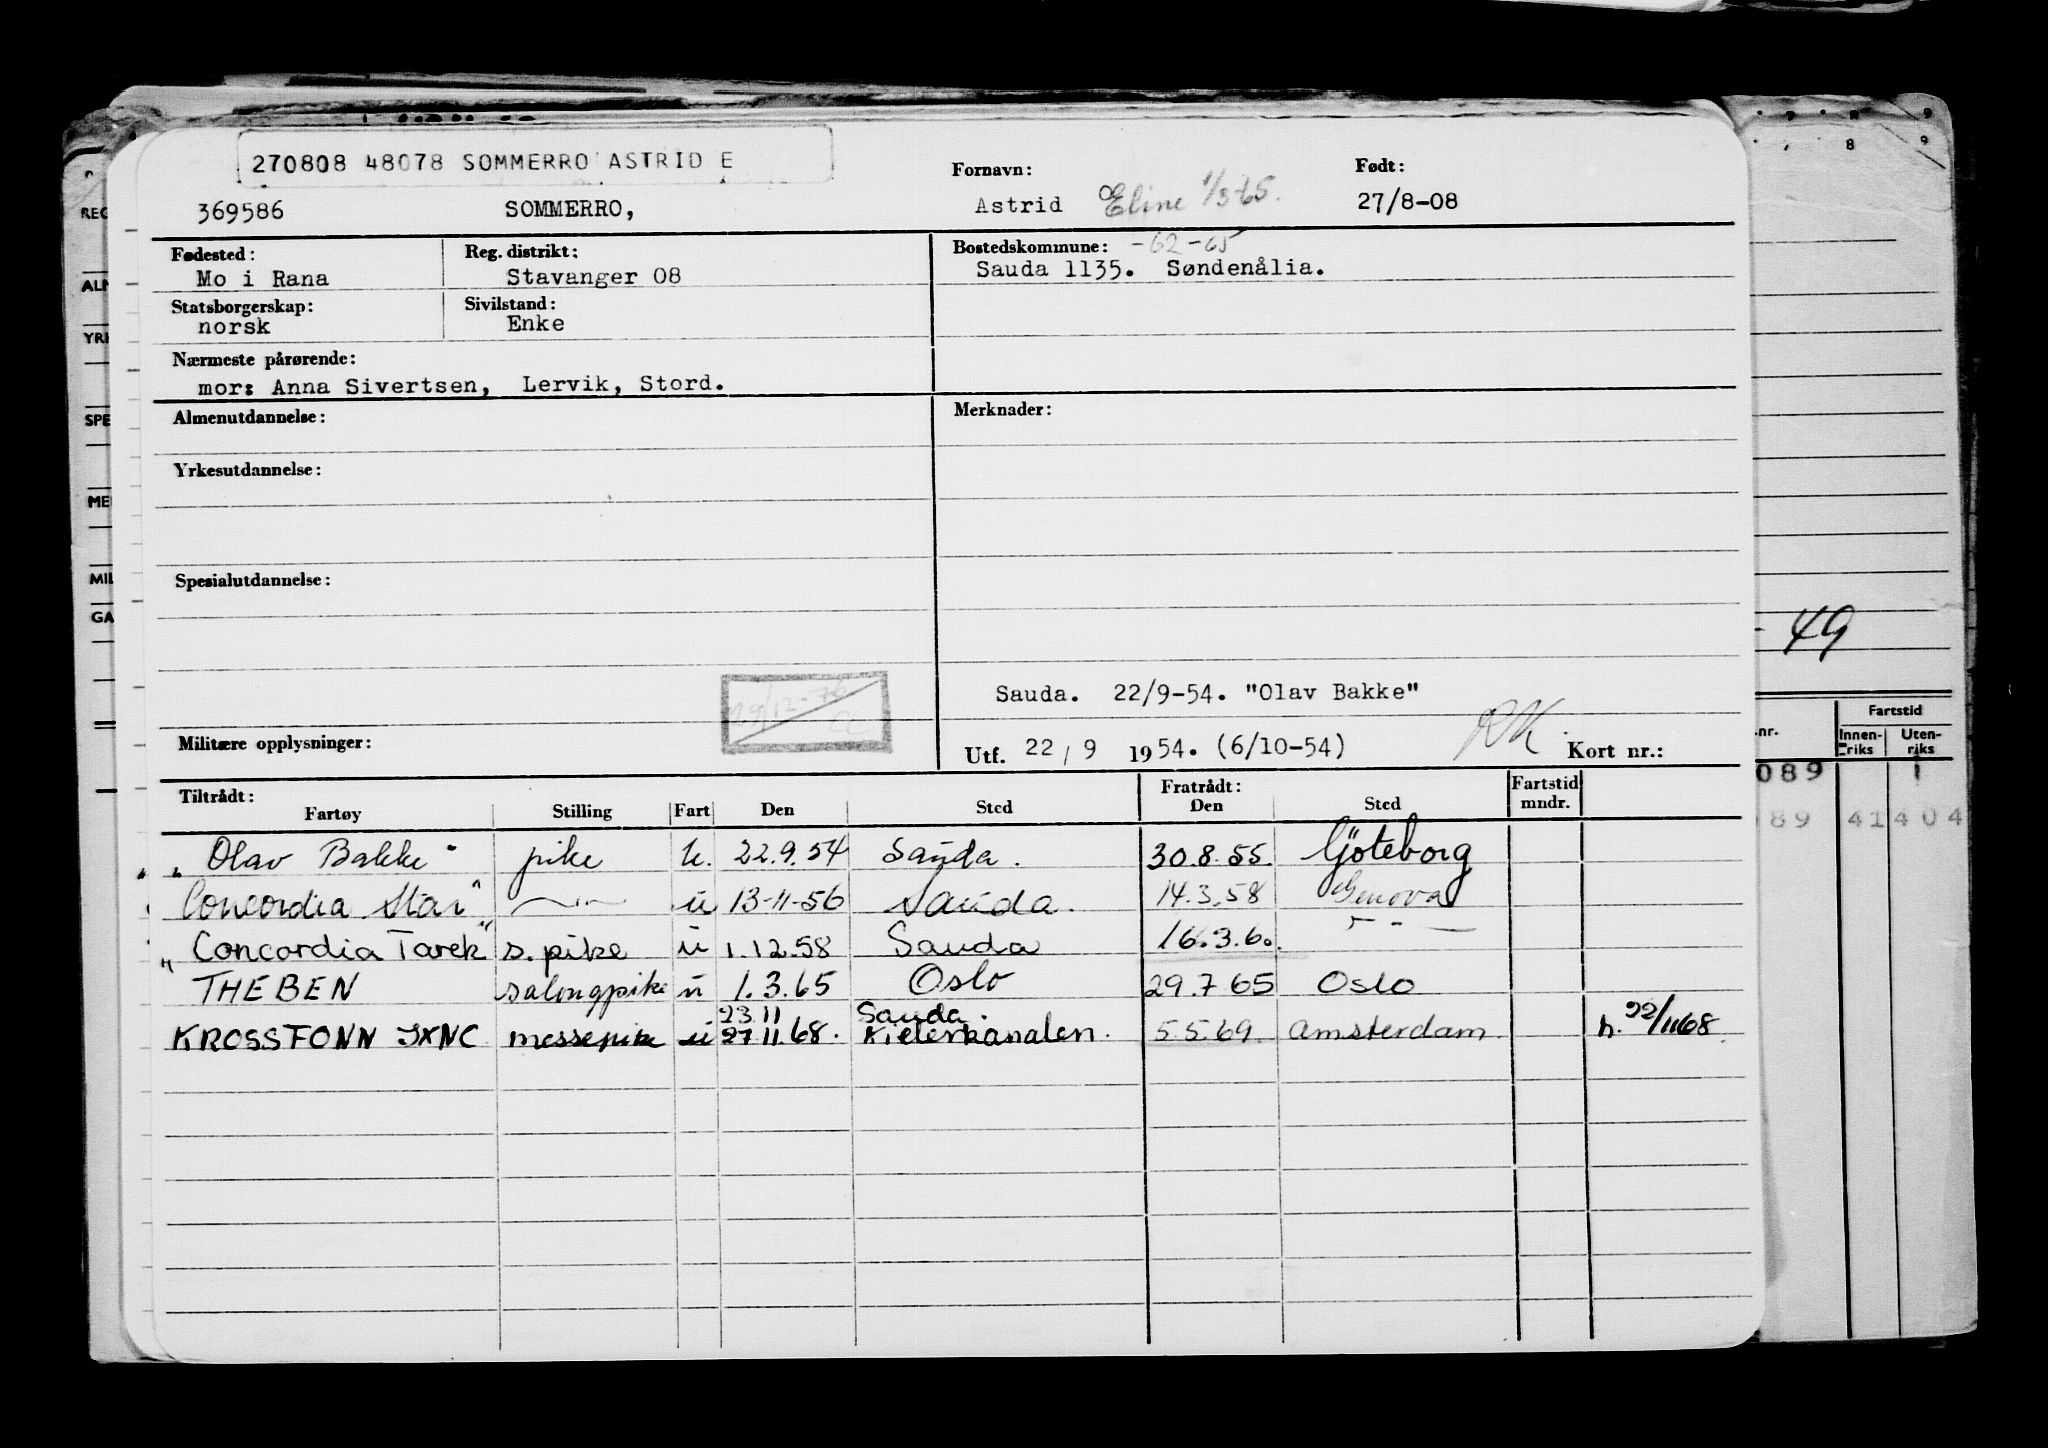 270808 48078 SOMMERRO ASTRID E
369586 SOMMERRO,
Fornavn: Født:
Astrid Eline 1/3-65. 27/8-08
Fødested: Reg. distrikt: Bostedskommune: -62-65
Mo i Rana Stavanger 08 Sauda 1135. Søndenålia.
Statsborgerskap: Sivilstand:
norsk Enke
Nærmeste pårørende:
mor: Anna Sivertsen, Lervik, Stord.
Almenutdannelse: Merknader:
Yrkesutdannelse:
Spesialutdannelse:
19/12-78
Sauda. 22/9-54. "Olav Bakke"
Militære opplysninger: Utf. 22/9 1954. (6/10-54) Kort nr.:
Tiltrådt: Fratrådt: Fartstid
Fartøy Stilling Fart Den Sted Den Sted mndr.
"Olav Bakke" pike u. 22.9.54 Sauda. 30.8.55. Göteborg
"Concordia Star" —"— u 13-11-56 Sauda. 14.3.58 Genova
"Concordia Tarek" s. pike u 1.12.58 Sauda 16.3.60. —"—
THEBEN salongpike u 1.3.65 Oslo 29.7 65 Oslo
23.11 Sauda.
KROSSFONN JXNC messepike u 27.11.68. Kielerkanalen. 5.5.69. Amsterdam. h. 22/11 68.
REG
ALM
YRK
SPE
MIL
GA
8 9
- 49
Fartstid
nr. Innen-riks Uten-riks
089 1
89 41 404